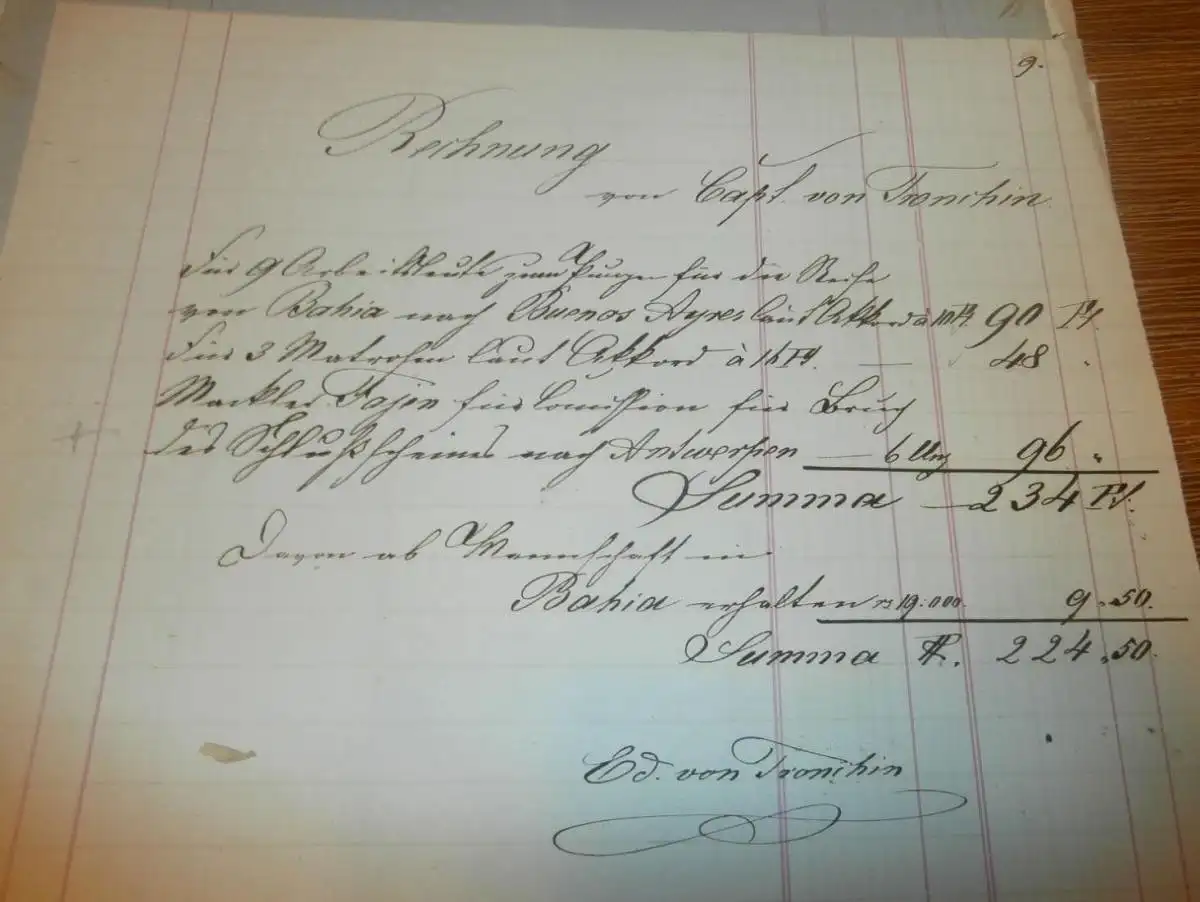 9.
Rechnung
von Capt. von Tronchin.
Für 9 Arbeitsleute zum Pumpen für die Reise
von Bahia nach Buenos Ayres laut Akkord à 10 Pf. 90 Pf.
Für 3 Matrosen laut Akkord à 16 Pf. — 48 "
Mackler für Comission für Bruch
des Schlußscheines nach Antwerpen — 6 Unz 96 "
Summa — 234 Pf.
Davon ab Mannschaft in
Bahia erhalten rs 19.000. 9.50.
Summa 224.50.
Ed. von Tronchin